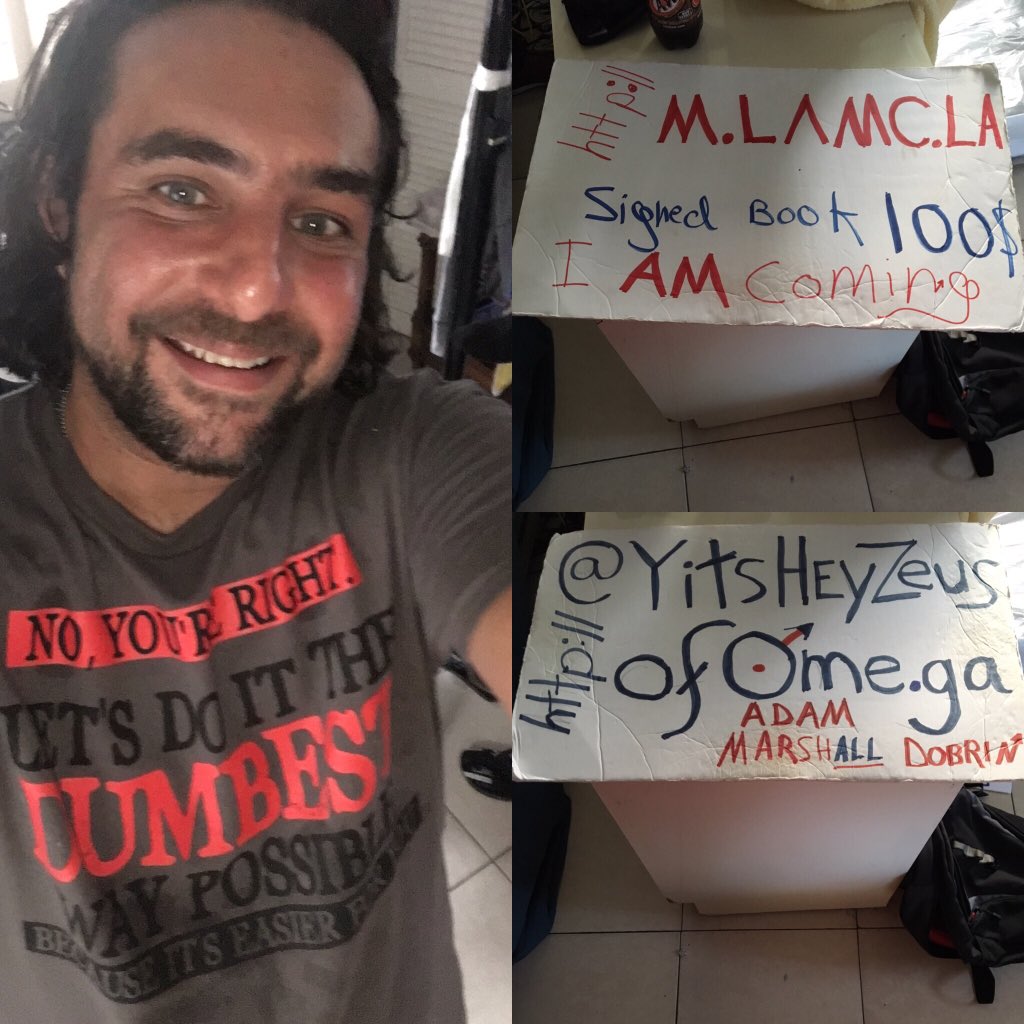 NO, YOU'RE RIGHT.
LET'S DO IT THE
DUMBEST
WAY POSSIBLE
BECAUSE IT'S EASIER
A&W
http://
M.LAMC.LA
Signed BOOK 100$
I AM Coming
http://
@YitsHEyZeus
of Ome.ga
ADAM
MARSHALL DOBRIN